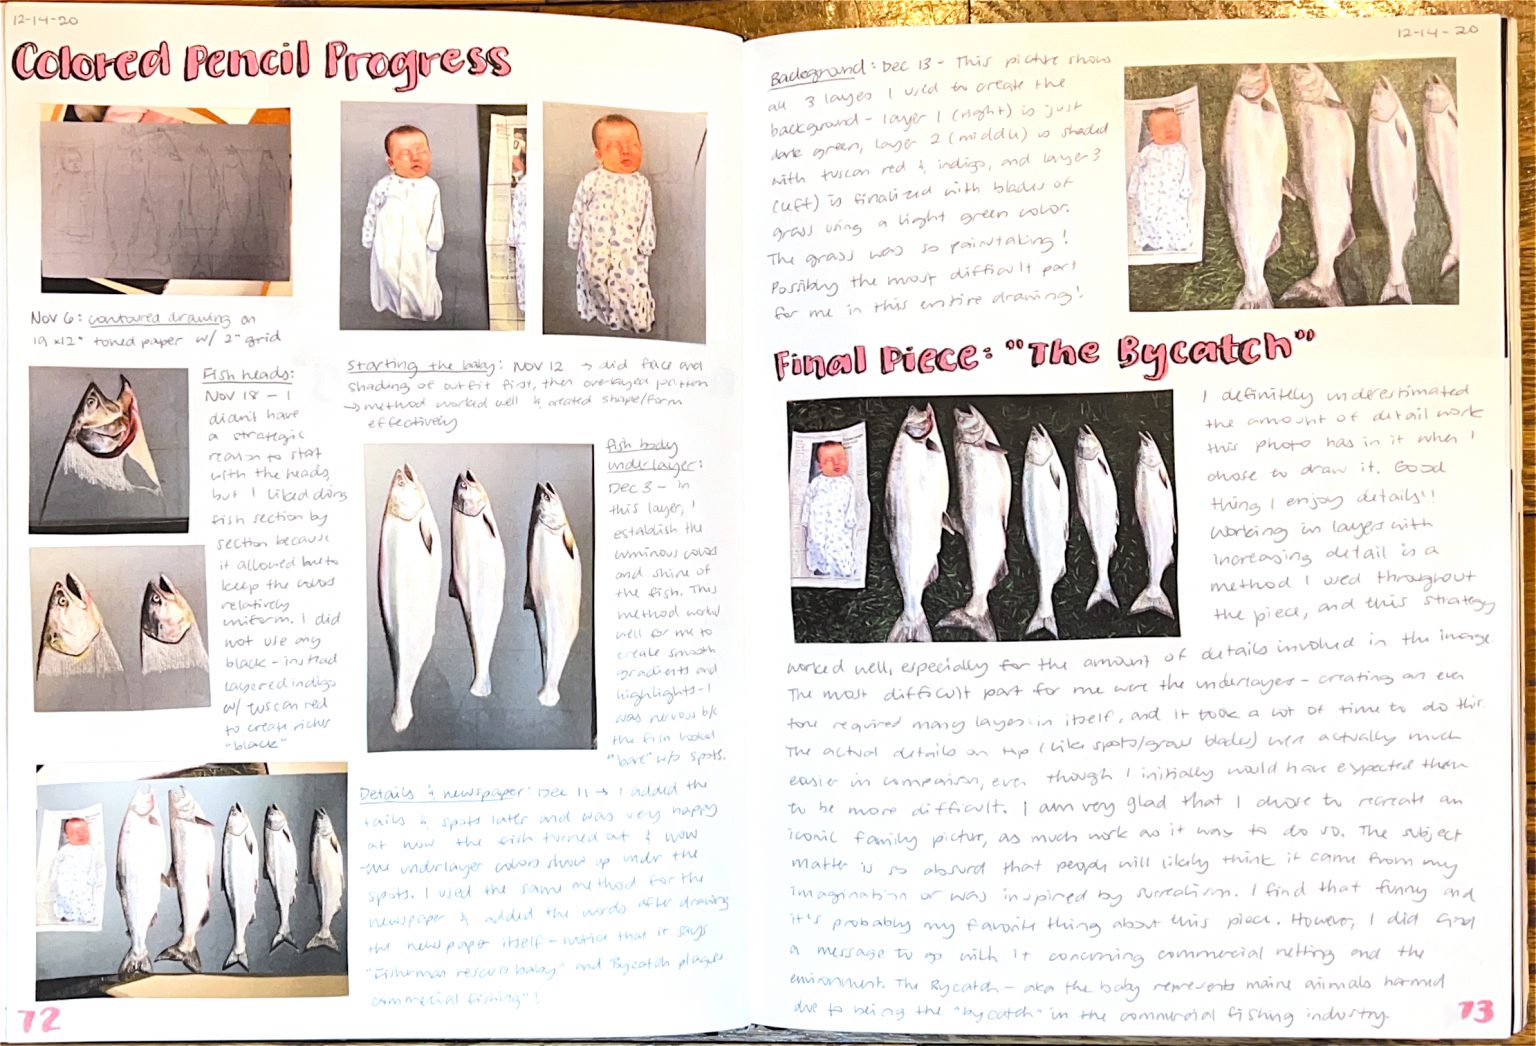 12-14-20
Colored Pencil Progress
Nov 6: contoured drawing on
19 x12" toned paper w/ 2" grid
Starting the baby: NOV 12 → did face and
shading of outfit first, then overlayed pattern
→ method worked well & created shape/form
effectively
Fish heads:
Nov 18 - I
didn't have
a strategic
reason to start
with the heads,
but I liked doing
fish section by
section because
it allowed me to
keep the colors
relatively
uniform. I did
not use any
black - instead
layered indigo
w/ tuscan red
to create richer
"black"
Fish body
underlayer:
Dec 3 - in
this layer, I
establish the
luminous colors
and shine of
the fish. This
method worked
well for me to
create smooth
gradients and
highlights - I
was nervous b/c
the fish looked
"bare" w/o spots.
Details & newspaper: Dec 11 → I added the
tails & spots later and was very happy
at how the fish turned out & how
the underlayer colors show up under the
spots. I used the same method for the
newspaper & added the words after drawing
the newspaper itself - notice that it says
"Fisherman rescues baby" and "Bycatch plagues
commercial fishing"!
72
12-14-20
Background: Dec 13 - This picture shows
all 3 layers I used to create the
background - layer 1 (right) is just
dark green, layer 2 (middle) is shaded
with tuscan red & indigo, and layer 3
(left) is finalized with blades of
grass using a light green color.
The grass was so painstaking!
Possibly the most difficult part
for me in this entire drawing!
Final Piece: "The Bycatch"
I definitely underestimated
the amount of detail work
this photo has in it when I
chose to draw it. Good
thing I enjoy details!!
Working in layers with
increasing detail is a
method I used throughout
the piece, and this strategy
worked well, especially for the amount of details involved in the image.
The most difficult part for me were the underlayers - creating an even
tone required many layers in itself, and it took a lot of time to do this.
The actual details on top (like spots/grass blades) were actually much
easier in comparison, even though I initially would have expected them
to be more difficult. I am very glad that I chose to recreate an
iconic family picture, as much work as it was to do so. The subject
matter is so absurd that people will likely think it came from my
imagination or was inspired by surrealism. I find that funny and
it's probably my favorite thing about this piece. However, I did find
a message to go with it concerning commercial netting and the
environment. The Bycatch - aka the baby represents marine animals harmed
due to being the "bycatch" in the commercial fishing industry.
73